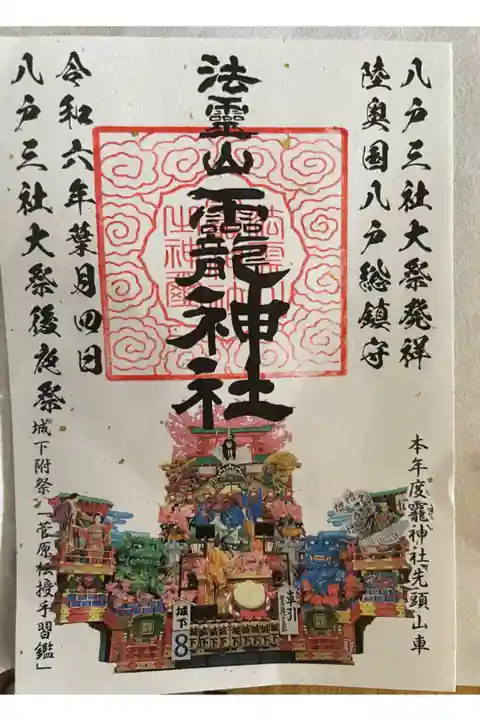 八戸三社大祭発祥
陸奥国八戸総鎮守
法靈山龗神社
令和六年葉月四日
八戸三社大祭後夜祭
本年度龗神社先頭山車
城下附祭「菅原伝授手習鑑」
城下
8